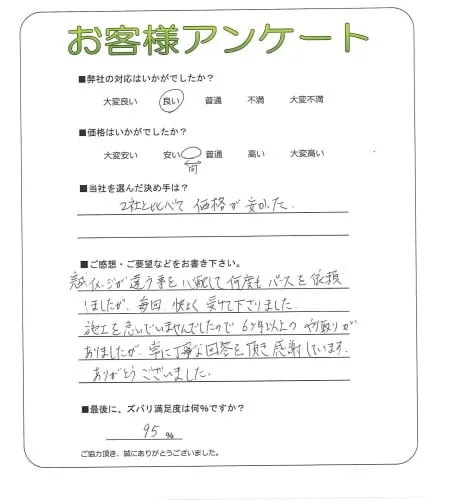 お客様アンケート
■弊社の対応はいかがでしたか?
大変良い 良い 普通 不満 大変不満
■価格はいかがでしたか?
大変安い 安い 普通 高い 大変高い
間
■当社を選んだ決め手は?
2社と比べて 価格が安かった.
■ご感想・ご要望などをお書き下さい。
イメージが違う事を心配して何度もパースを依頼
しましたが、毎回、快よく受けて下さりました.
施工を急いでいませんでしたので 6ヶ月以上の やり取りが
ありましたが、常に丁寧な回答を頂き感謝しています.
ありがとうございました.
■最後に、ズバリ満足度は何%ですか?
95 %
ご協力頂き、誠にありがとうございました。